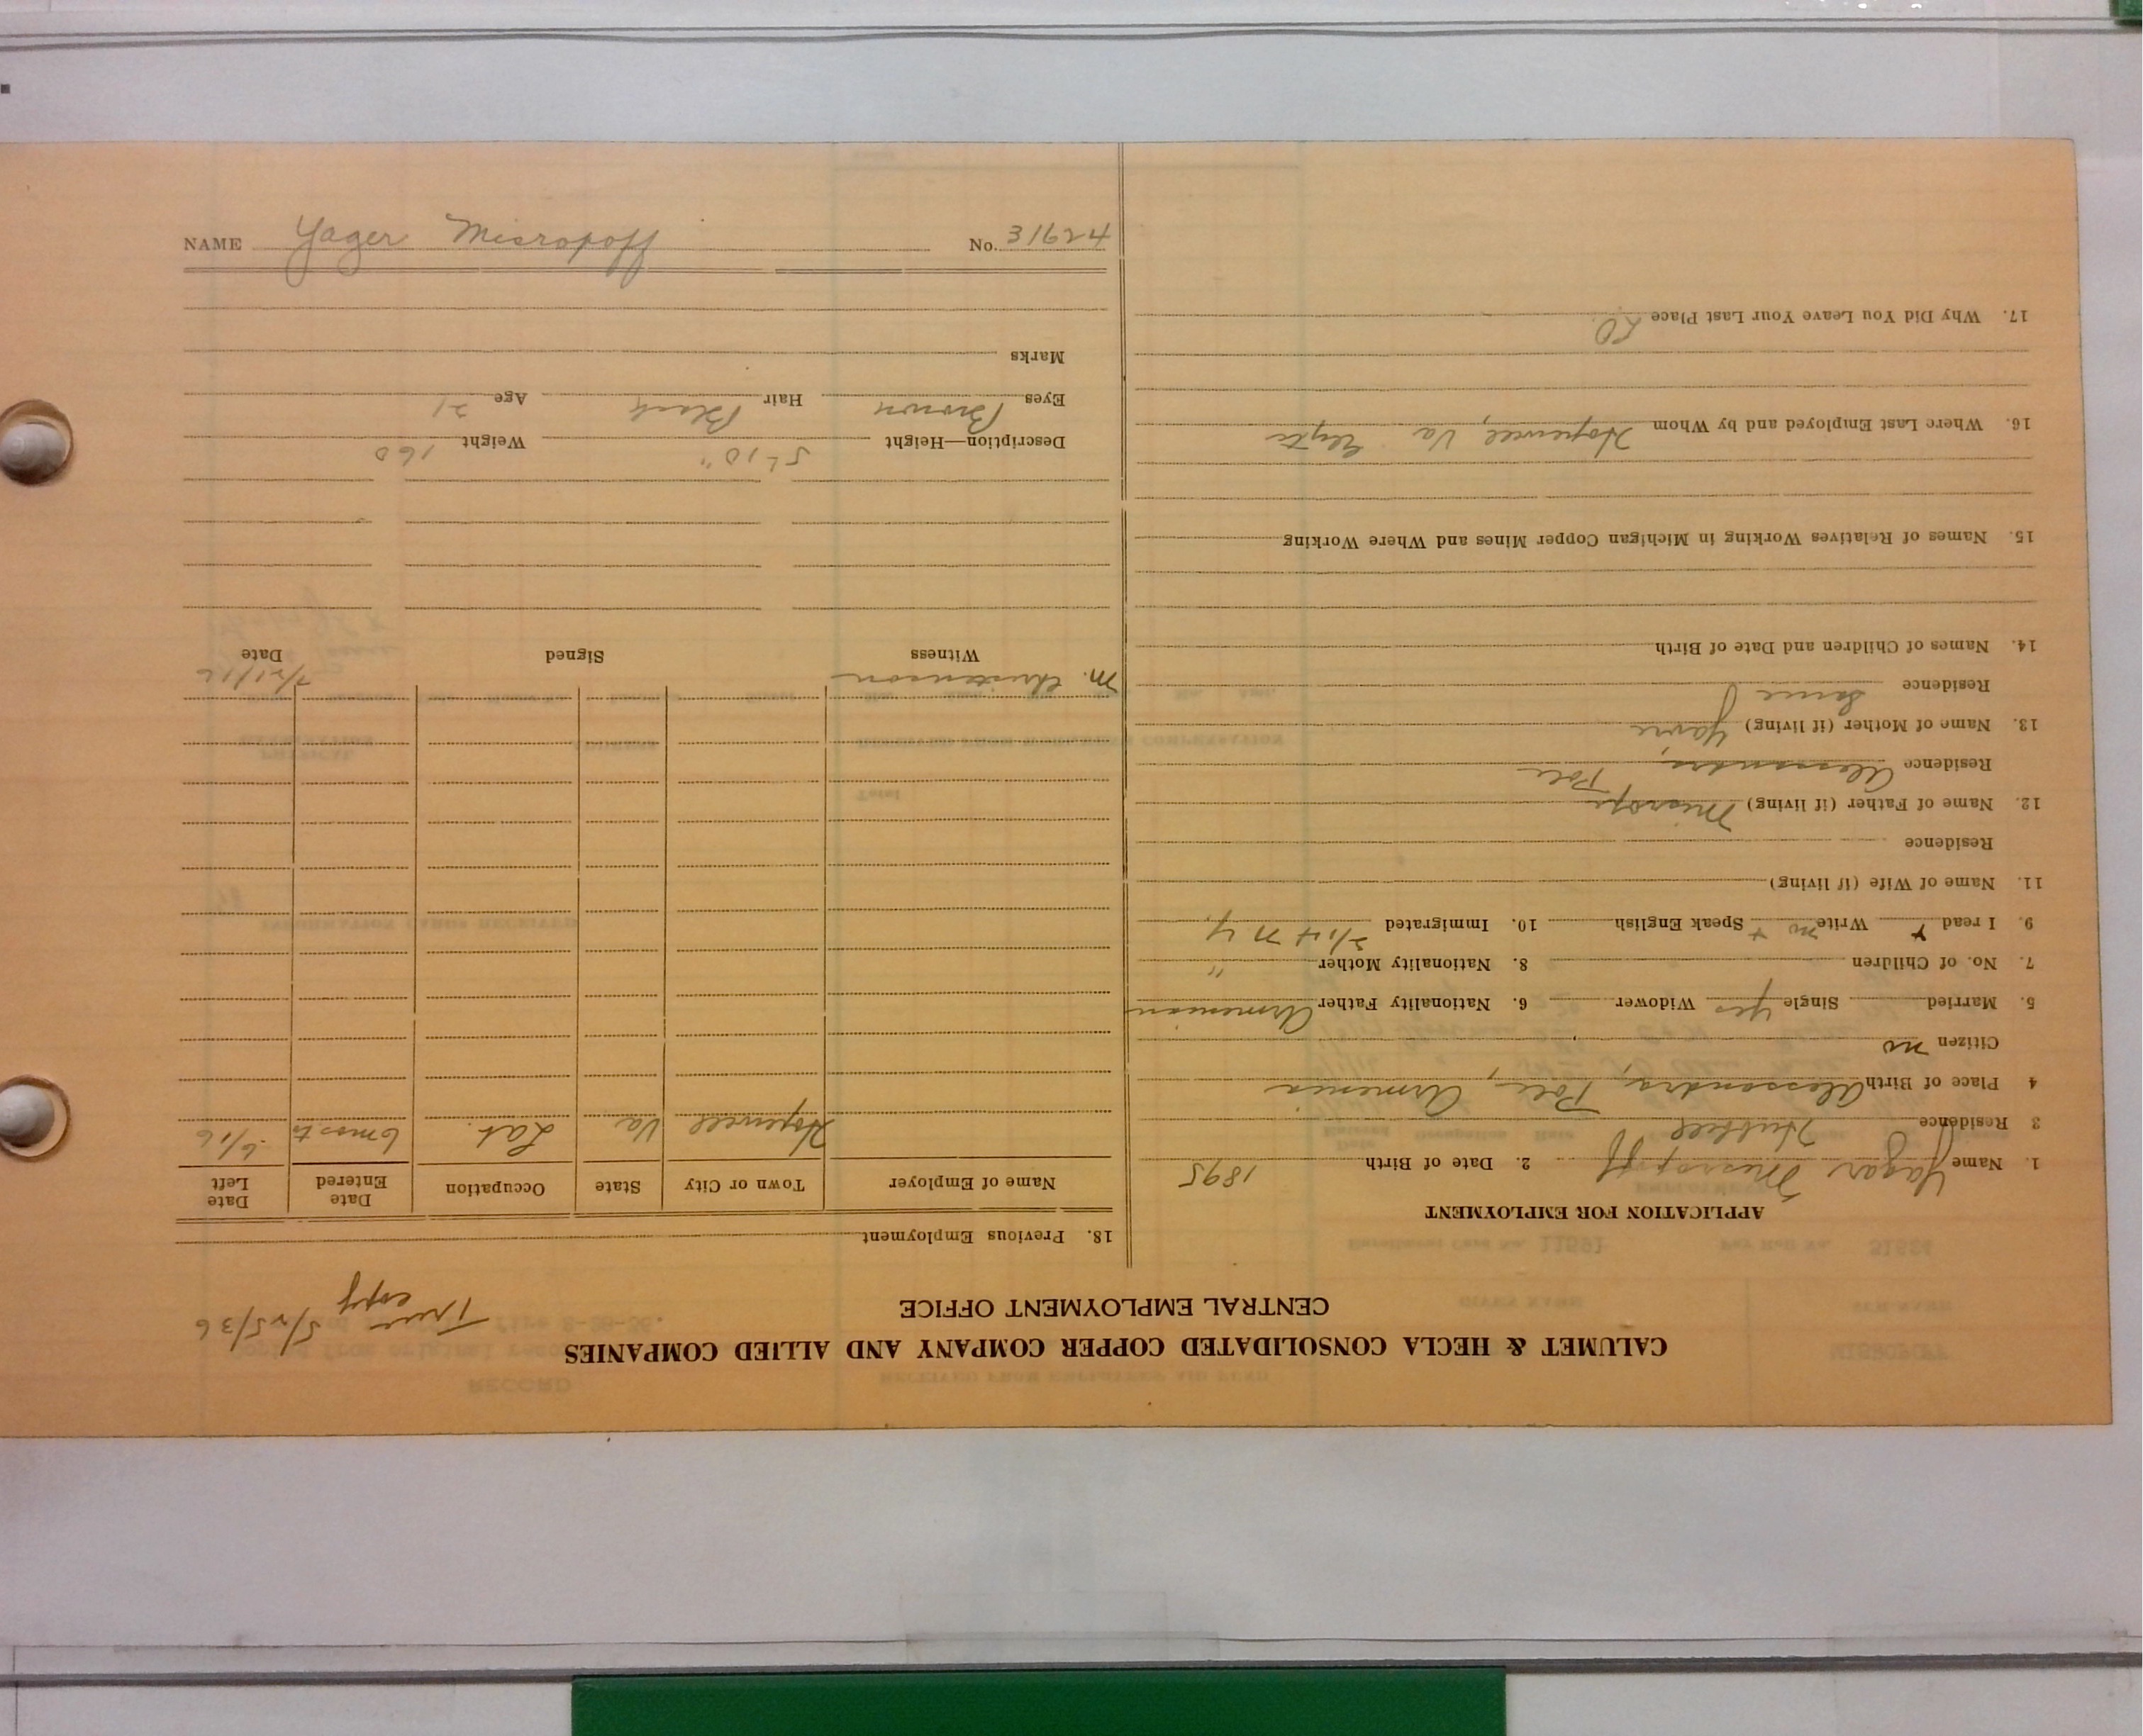 CALUMET & HECLA CONSOLIDATED COPPER COMPANY AND ALLIED COMPANIES
CENTRAL EMPLOYMENT OFFICE
True copy 5/25/36
APPLICATION FOR EMPLOYMENT
1. Name Yagar Misropoff 2. Date of Birth 1895
3 Residence Hubbell
4 Place of Birth Alessandra, Pole, Armenia
Citizen no
5. Married Single Yes Widower 6. Nationality Father Armenian
7. No. of Children 8. Nationality Mother "
9. I read Write no Speak English 10. Immigrated 2/14 N Y.
11. Name of Wife (if living)
Residence
12. Name of Father (if living) Misrop
Residence Alessandra, Pole
13. Name of Mother (if living)
Residence Same
14. Names of Children and Date of Birth
15. Names of Relatives Working in Michigan Copper Mines and Where Working
16. Where Last Employed and by Whom Hopewell, Va
17. Why Did You Leave Your Last Place
18. Previous Employment
Name of Employer Town or City State Occupation Date Entered Date Left
Hopewell Va Lab. 6 mos. to 6/16
M. Christenson 7/21/16
Witness Signed Date
Description—Height 5' 10" Weight 160
Eyes Brown Hair Black Age 21
Marks
NAME Yager Misropoff No. 31624